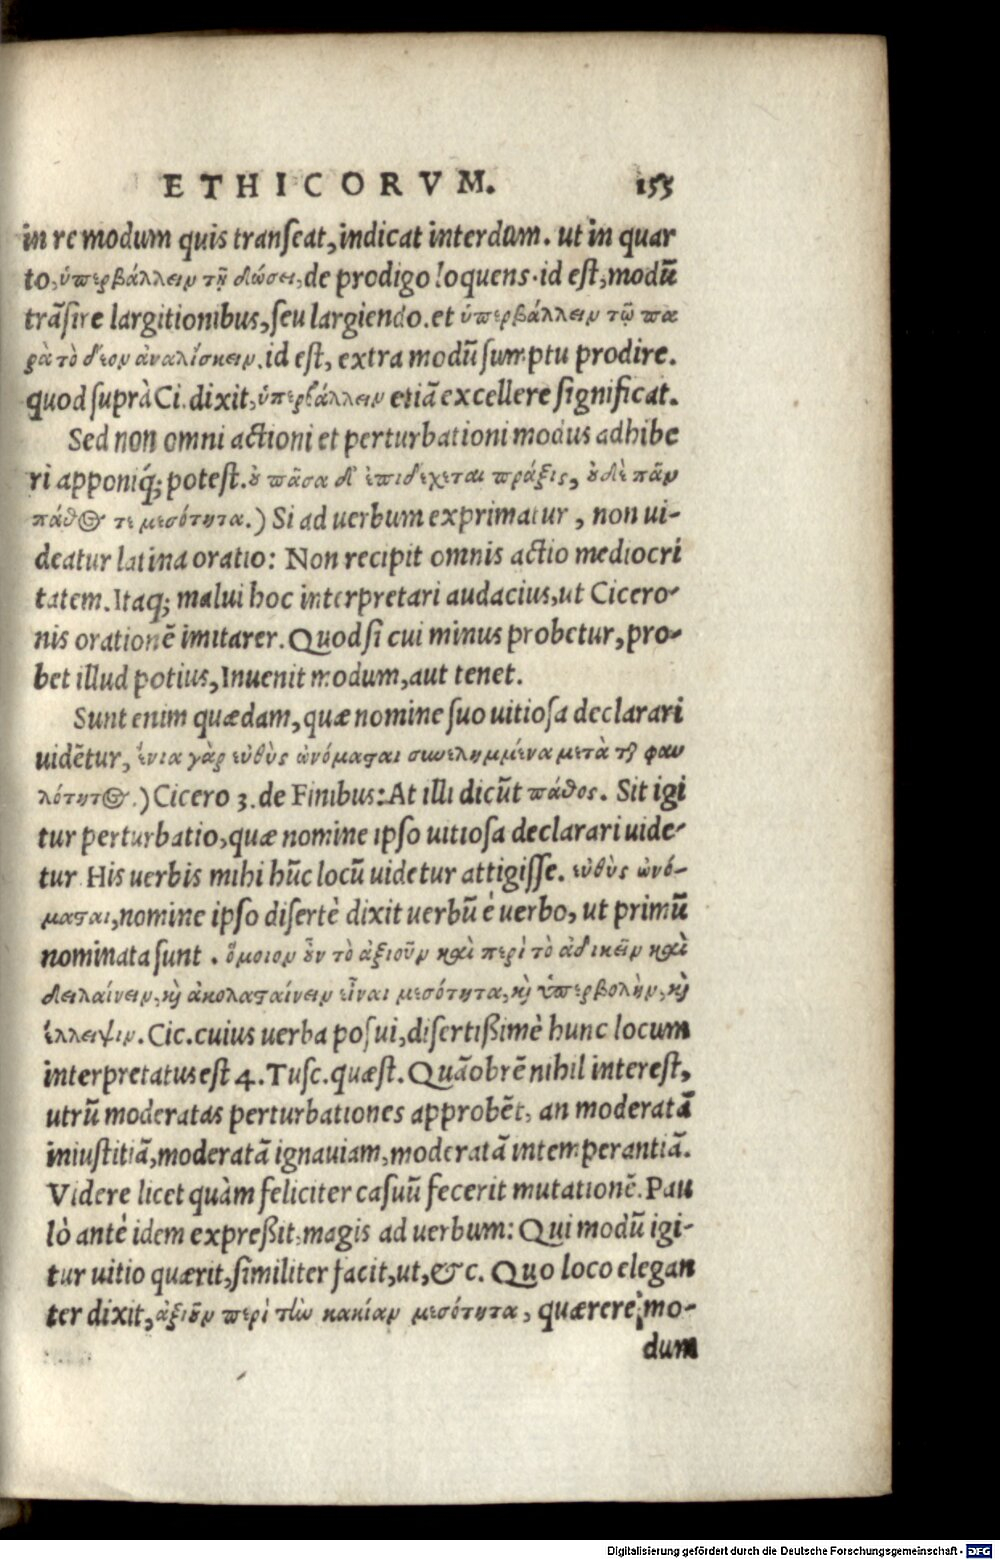 ETHICORVM. 155
in re modum quis transeat, indicat interdum. ut in quar
to, ὑπερβάλλειν τῇ δώσει, de prodigo loquens. id est, modū
trāsire largitionibus, seu largiendo. et ὑπερβάλλειν τῷ πα
ρὰ τὸ δέον ἀναλίσκειν. id est, extra modū sumptu prodire.
quod suprà Ci. dixit, ὑπερβάλλειν etiā excellere significat.
Sed non omni actioni et perturbationi modus adhibe
ri apponiq́; potest. ȣ πᾶσα δ' ἐπιδέχεται πρᾶξις, ȣδὲ πᾶν
πάθος τὲ μεσότητα.) Si ad uerbum exprimatur, non ui-
deatur latina oratio: Non recipit omnis actio mediocri
tatem. Itaq; malui hoc interpretari audacius, ut Cicero-
nis orationē imitarer. Quod si cui minus probetur, pro-
bet illud potius, Inuenit modum, aut tenet.
Sunt enim quædam, quæ nomine suo uitiosa declarari
uidētur, ἔνια γὰρ εὐθὺς ὠνόμασαι συνειλημμένα μετὰ τῆς φαυ
λότητος.) Cicero 3. de Finibus: At illi dicūt πάθος. Sit igi
tur perturbatio, quæ nomine ipso uitiosa declarari uide-
tur His uerbis mihi hūc locū uidetur attigisse. εὐθὺς ὠνό-
μασαι, nomine ipso disertè dixit uerbū è uerbo, ut primū
nominata sunt. ὅμοιον ȣν τὸ ἀξιοῦν καὶ περὶ τὸ ἀδικεῖν καὶ
δειλαίνειν, καὶ ἀκολασαίνειν εἶναι μεσότητα, καὶ ὑπερβολὴν, καὶ
ἔλλειψιν. Cic. cuius uerba posui, disertißimè hunc locum
interpretatus est 4. Tusc. quæst. Quāobrē nihil interest,
utrū moderatas perturbationes approbēt, an moderatā
iniustitiā, moderatā ignauiam, moderatā intemperantiā.
Videre licet quàm feliciter casuū fecerit mutationē. Pau
lò antè idem expreßit, magis ad uerbum: Qui modū igi-
tur uitio quærit, similiter facit, ut, &c. Quo loco elegan
ter dixit, ἀξιȣ͂ν περὶ τὴν κακίαν μεσότητα, quærere mo-
dum
Digitalisierung gefördert durch die Deutsche Forschungsgemeinschaft - DFG